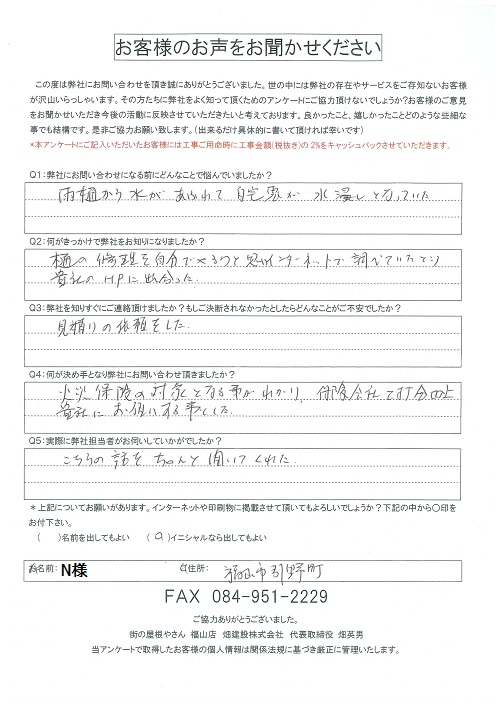 お客様のお声をお聞かせください
この度は弊社にお問い合わせを頂き誠にありがとうございました。世の中には弊社の存在やサービスをご存知ないお客様
が沢山いらっしゃいます。その方たちに弊社をよく知って頂くためのアンケートにご協力頂けないでしょうか?お客様のご意見
をお聞かせいただき今後の活動に反映させていただきたいと考えております。良かったこと、嬉しかったことどのような些細な
事でも結構です。是非ご協力お願い致します。(出来るだけ具体的に書いて頂ければ幸いです)
*本アンケートにご記入いただいたお客様には工事ご用命時に工事金額(税抜き)の2%をキャッシュバックさせていただきます。
Q1:弊社にお問い合わせになる前にどんなことで悩んでいましたか?
雨樋から水があふれて自宅裏が水浸しとなっていた
Q2:何がきっかけで弊社をお知りになりましたか?
樋の修理を自分でやろうと思いインターネットで調べていたところ
貴社のHPに出会った.
Q3:弊社を知りすぐにご連絡頂けましたか?もしご決断されなかったとしたらどんなことがご不安でしたか?
見積りの依頼をした.
Q4:何が決め手となり弊社にお問い合わせ頂きましたか?
火災保険の対象となる事がわかり、保険会社と打合の上
貴社にお任せする事とした.
Q5:実際に弊社担当者がお伺いしていかがでしたか?
こちらの話をちゃんと聞いてくれた.
*上記についてお願いがあります。インターネットや印刷物に掲載させて頂いてもよろしいでしょうか?下記の中から○印を
お付下さい。
( )名前を出してもよい (○)イニシャルなら出してもよい
お名前: N様 ご住所: 福山市引野町
FAX 084-951-2229
ご協力ありがとうございました。
街の屋根やさん 福山店 畑建設株式会社 代表取締役 畑英男
当アンケートで取得したお客様の個人情報は関係法規に基づき厳正に管理いたします。